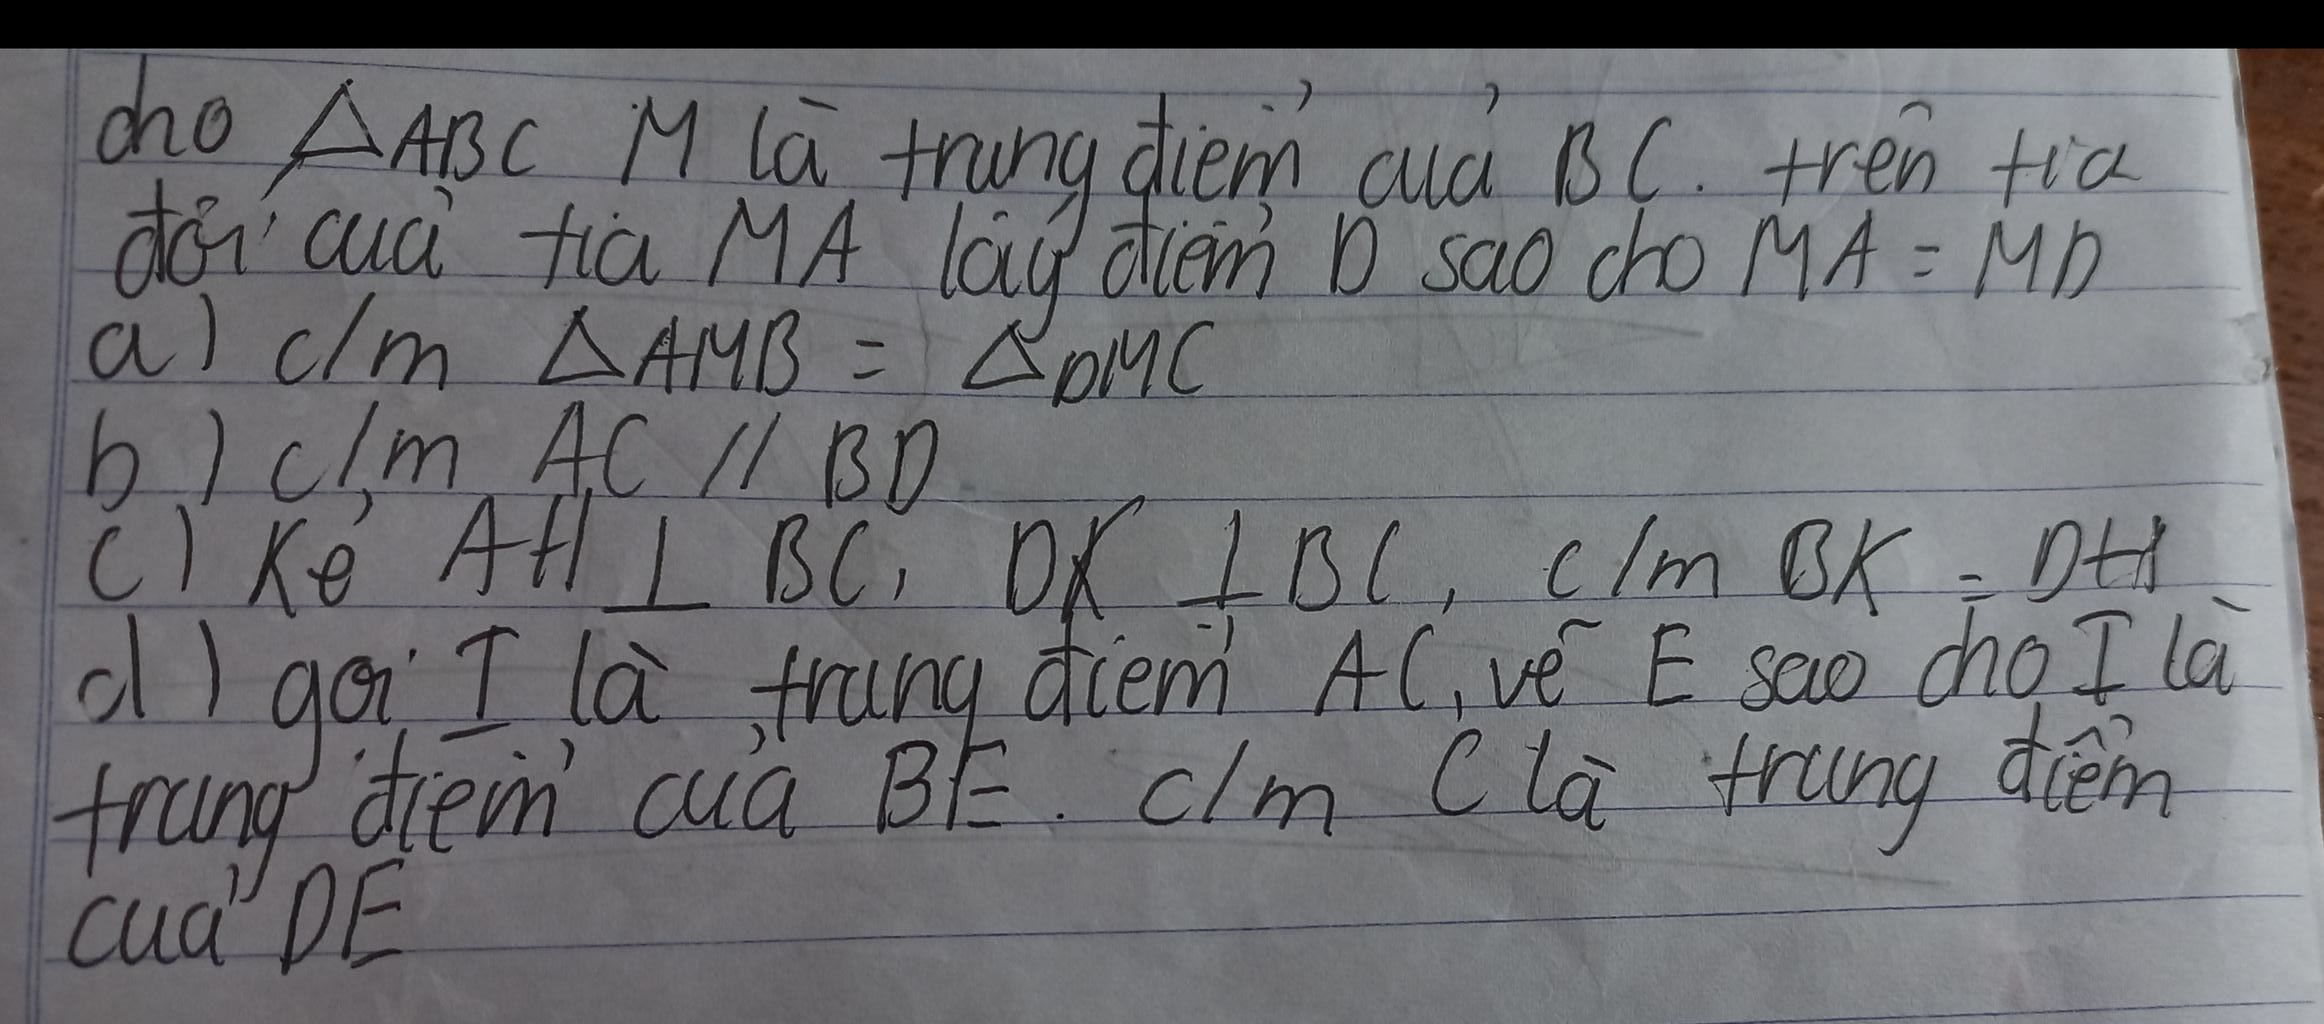 cho △ABC M là trung điểm của BC. trên tia
đối của tia MA lấy điểm D sao cho MA = MD
a) c/m △AMB = △DMC
b) c/m AC // BD
c) Kẻ AH ⊥ BC, DK ⊥ BC, c/m BK = DH
d) gọi I là trung điểm AC, vẽ E sao cho I là
trung điểm của BE. c/m C là trung điểm
của DE